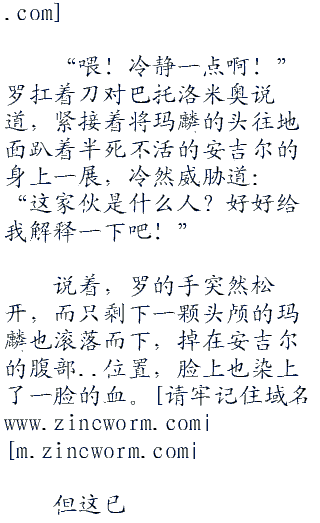 .com]
“喂！冷静一点啊！”
罗扛着刀对巴托洛米奥说
道，紧接着将玛麟的头往地
面趴着半死不活的安吉尔的
身上一展，冷然威胁道：
“这家伙是什么人？好好给
我解释一下吧！”
说着，罗的手突然松
开，而只剩下一颗头颅的玛
麟也滚落而下，掉在安吉尔
的腹部..位置，脸上也染上
了一脸的血。[请牢记住域名
www.zincworm.com|
[m.zincworm.com|
但这已